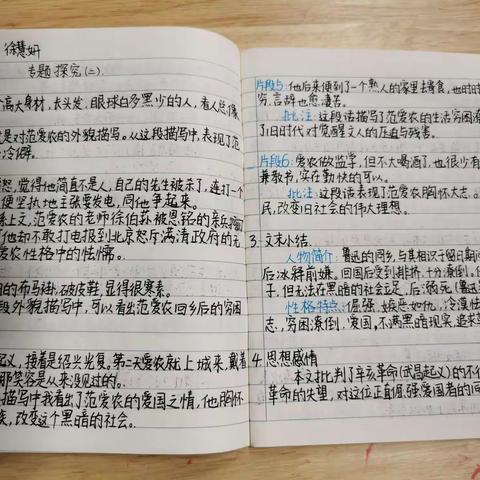 徐慧妍
专题探究(二)
高大身材,长头发,眼球白多黑少的人,看人总像
是对范爱农的外貌描写。从这段描写中,表现了范
冷僻。
怒,觉得他简直不是人,自己的先生被杀了,连打一个
便坚执地主张要发电,同他争起来。
系上文,范爱农的老师徐伯荪被恩铭的亲兵
他却不敢打电报到北京怒斥满清政府的无
爱农性格中的怯懦。
的布马褂,破皮鞋,显得很寒素。
段外貌描写中,可以看出范爱农回乡后的穷困
起义,接着是绍兴光复。第二天爱农就上城来,戴着
那笑容是从来没见过的。
描写中我看出了范爱农的爱国之情,他胸怀
族,改变这个黑暗的社会。
片段5:他后来便到了一个熟人的家里去寄食,也时时
穷,言辞也愈凄苦。
批注:这段话描写了范爱农的生活穷困
了旧时代对觉醒文人的压迫与残害。
片段6:爱农做监学,但不大喝酒了,也很少有
兼教书,实在勤快的可以。
批注:这段话表现了范爱农胸怀大志。
民,改变旧社会的伟大理想。
3.文末小结.
人物简介:鲁迅的同乡,与其相识于留日期间
后冰释前嫌。回国后受到排挤,十分潦倒。
子,但无法在黑暗的社会立足,后溺死(鲁迅
性格特点:倔强、嫉恶如仇、冷漠
志,穷困潦倒,爱国。不满黑暗现实,追求
4.思想感情
本文批判了辛亥革命(武昌起义)的不
革命的失望,对这位正直倔强爱国者的同